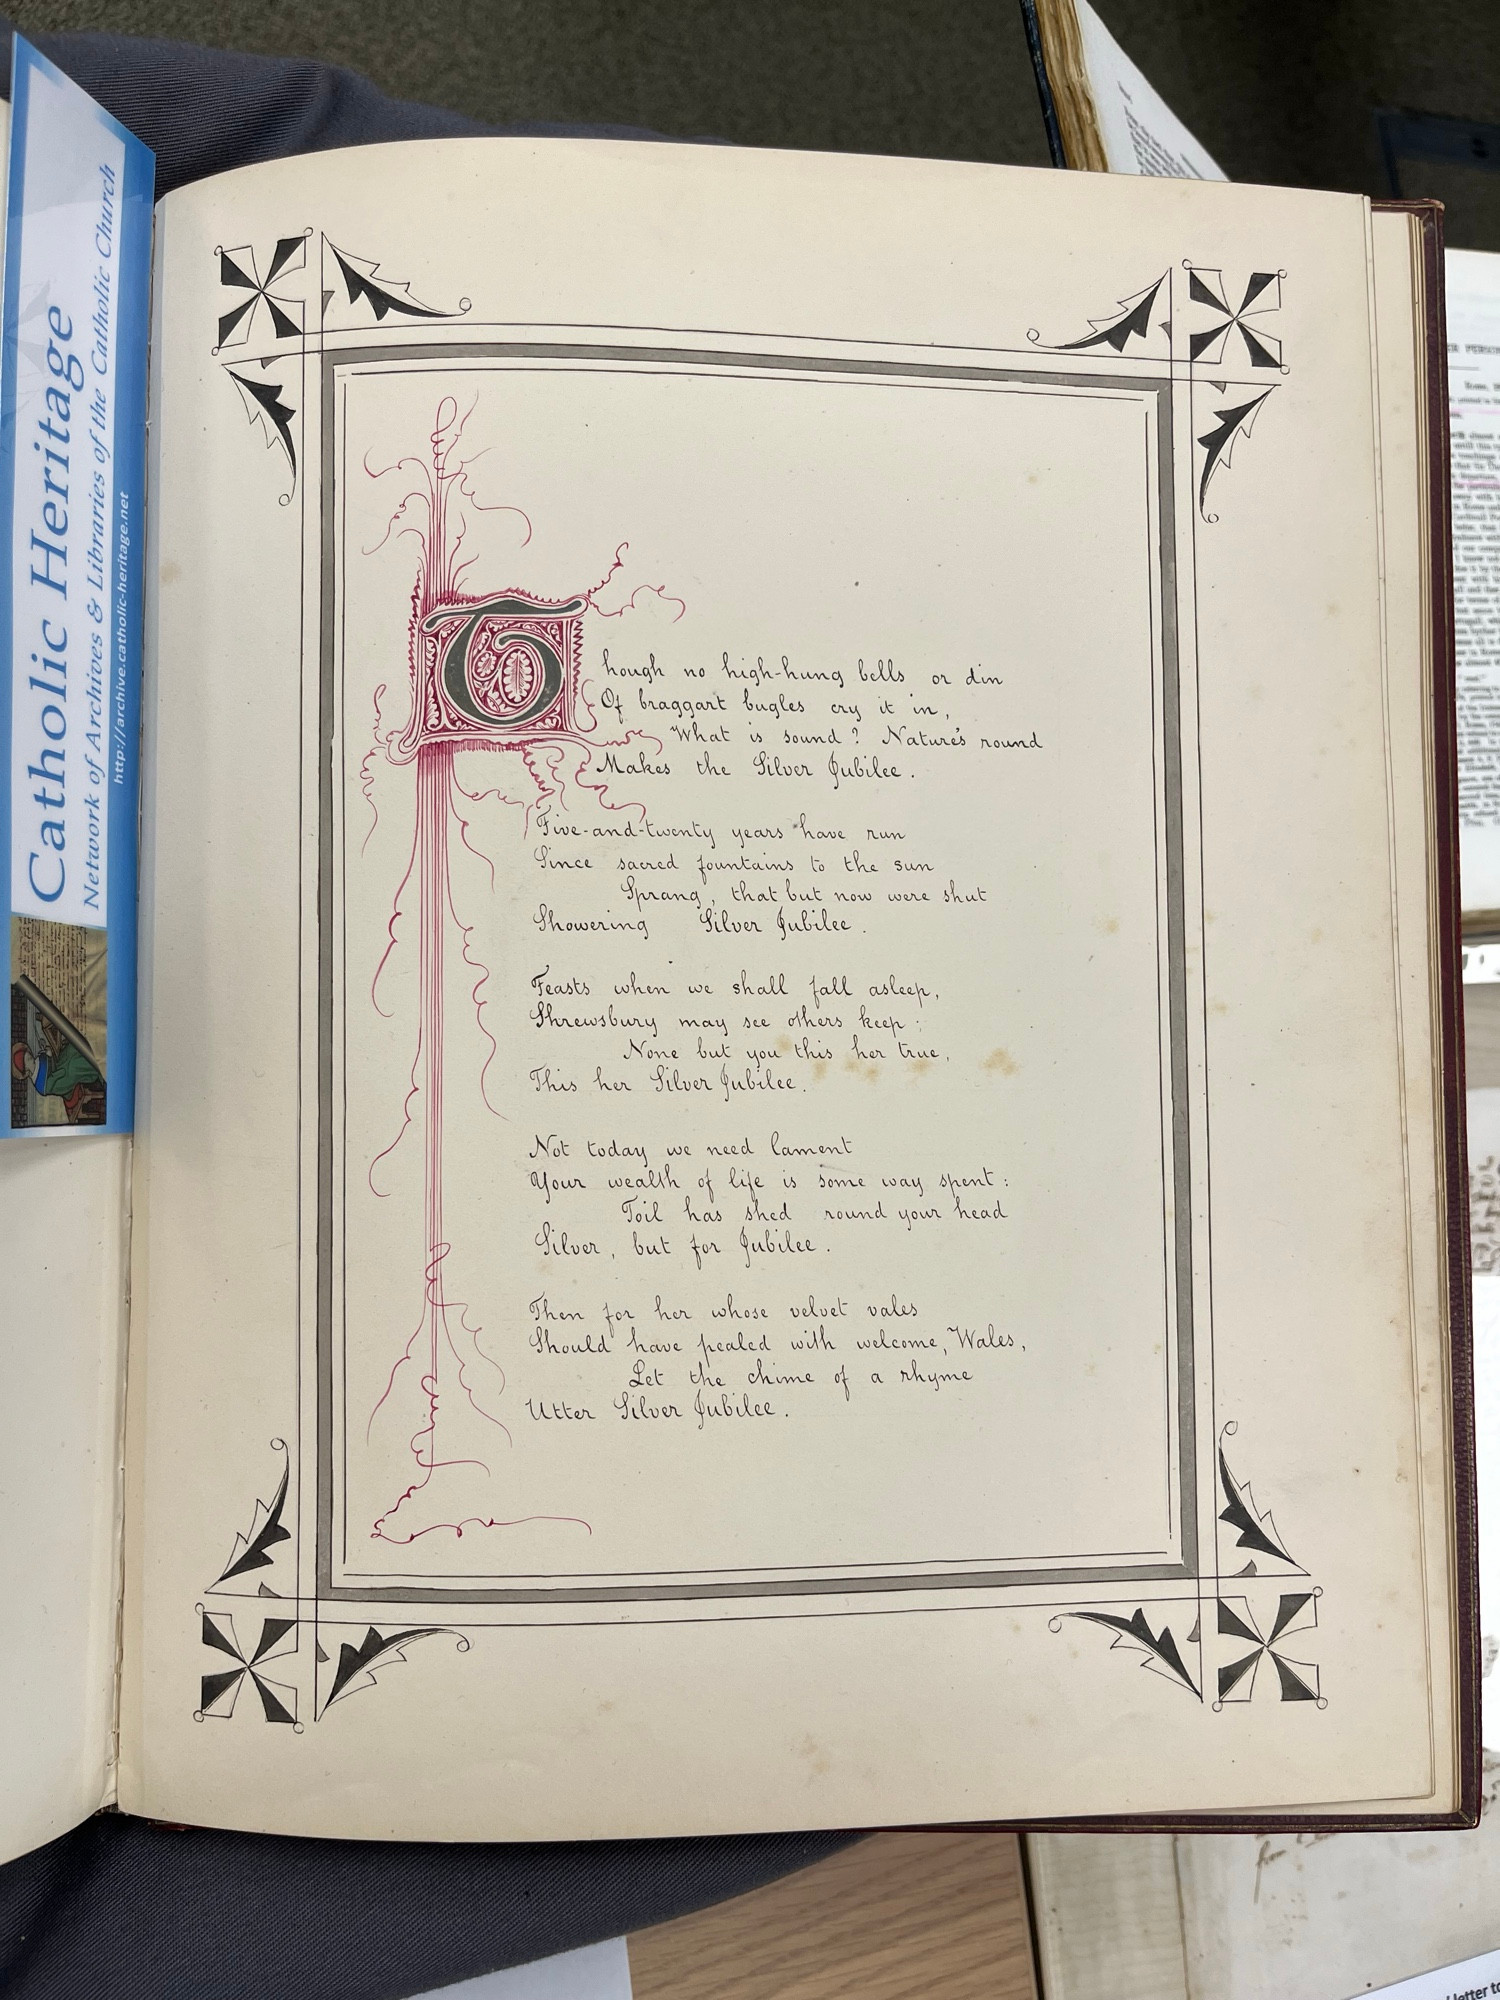 Catholic Heritage
Network of Archives & Libraries of the Catholic Church
http://archive.catholic-heritage.net
Though no high-hung bells or din
Of braggart bugles cry it in,
What is sound? Nature's round
Makes the Silver Jubilee.
Five-and-twenty years have run
Since sacred fountains to the sun
Sprang, that but now were shut
Showering Silver Jubilee.
Feasts when we shall fall asleep,
Shrewsbury may see others keep;
None but you this her true,
This her Silver Jubilee.
Not today we need lament
Your wealth of life is some way spent:
Toil has shed round your head
Silver, but for Jubilee.
Then for her whose velvet vales
Should have pealed with welcome, Wales,
Let the chime of a rhyme
Utter Silver Jubilee.
letter to